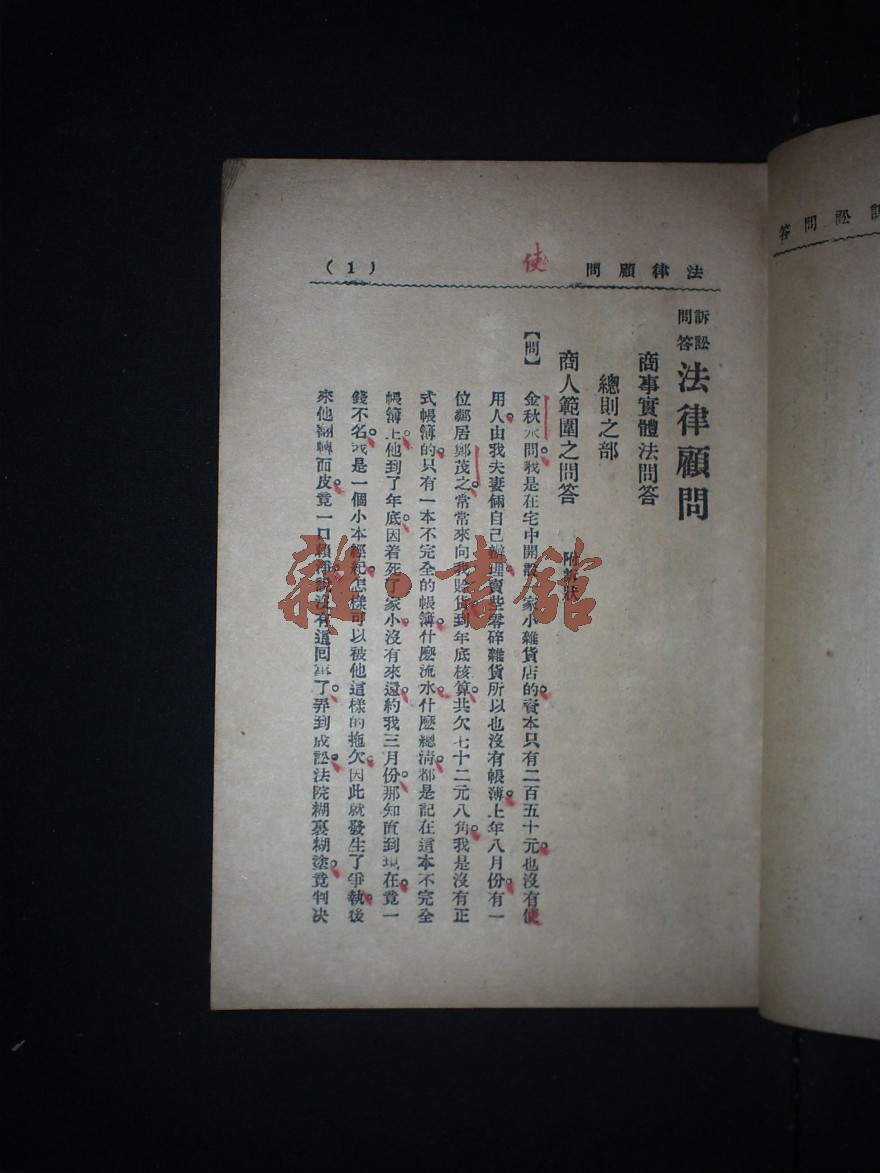 法律顧問
使
(1)
訴訟
問答
法律顧問
商事實體法問答
總則之部
商人範圍之問答 附訴狀
【問】 金秋水問我是在宅中開設一家小雜貨店的資本只有二百五十元也沒有使
用人由我夫妻倆自己辦理賣些零碎雜貨所以也沒有帳簿上年八月份有一
位鄰居鄭茂之常常來向我賒貨到年底核算共欠七十二元八角我是沒有正
式帳簿的只有一本不完全的帳簿什麼流水什麼總清都是記在這本不完全
帳簿上他到了年底因着死了家小沒有來還約我三月份那知直到現在竟一
錢不名我是一個小本經紀怎樣可以被他這樣的拖欠因此就發生了爭執後
來他翻轉面皮竟一口賴淨說沒有這回事了弄到成訟法院糊裏糊塗竟判決
訟問答
雜·書館